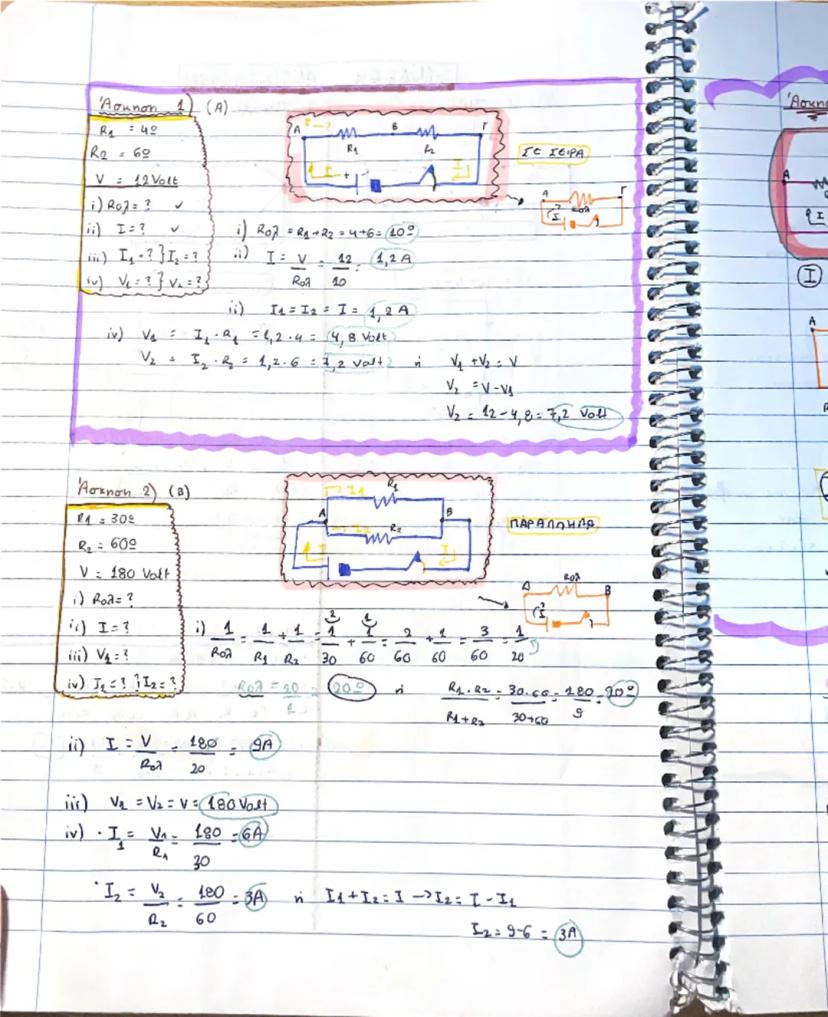 Άσκηση 1) (A)
R1 = 4Ω
R2 = 6Ω
V = 12 Volt
i) Rολ = ? ✓
ii) I = ? ✓
iii) I1 = ? } I2 = ?
iv) V1 = ? } V2 = ?
A I → B Γ
R1 R2
I + I
ΣΕ ΣΕΙΡΑ
A Γ
Rολ
I
i) Rολ = R1 + R2 = 4+6 = 10Ω
ii) I = V/Rολ = 12/10 = 1,2 A
ii) I1 = I2 = I = 1,2 A
iv) V1 = I1 · R1 = 1,2 · 4 = 4,8 Volt
V2 = I2 · R2 = 1,2 · 6 = 7,2 Volt ή V1 + V2 = V
V2 = V - V1
V2 = 12 - 4,8 = 7,2 Volt
Άσκηση 2) (B)
R1 = 30Ω
R2 = 60Ω
V = 180 Volt
i) Rολ = ?
ii) I = ?
iii) V1 = ?
iv) I1 = ? } I2 = ?
R1
→ I1
A B
→ I2 R2
I I
ΠΑΡΑΛΛΗΛΑ
A Rολ B
I
i) 1/Rολ = 1/R1 + 1/R2 = 1/30 + 1/60 = 2/60 + 1/60 = 3/60 = 1/20
Rολ = 20/1 = 20Ω ή R1·R2/R1+R2 = 30·60/30+60 = 180/9 = 20Ω
ii) I = V/Rολ = 180/20 = 9A
iii) V1 = V2 = V = 180 Volt
iv) · I1 = V1/R1 = 180/30 = 6A
· I2 = V2/R2 = 180/60 = 3A ή I1 + I2 = I → I2 = I - I1
I2 = 9-6 = 3A
A
I
A